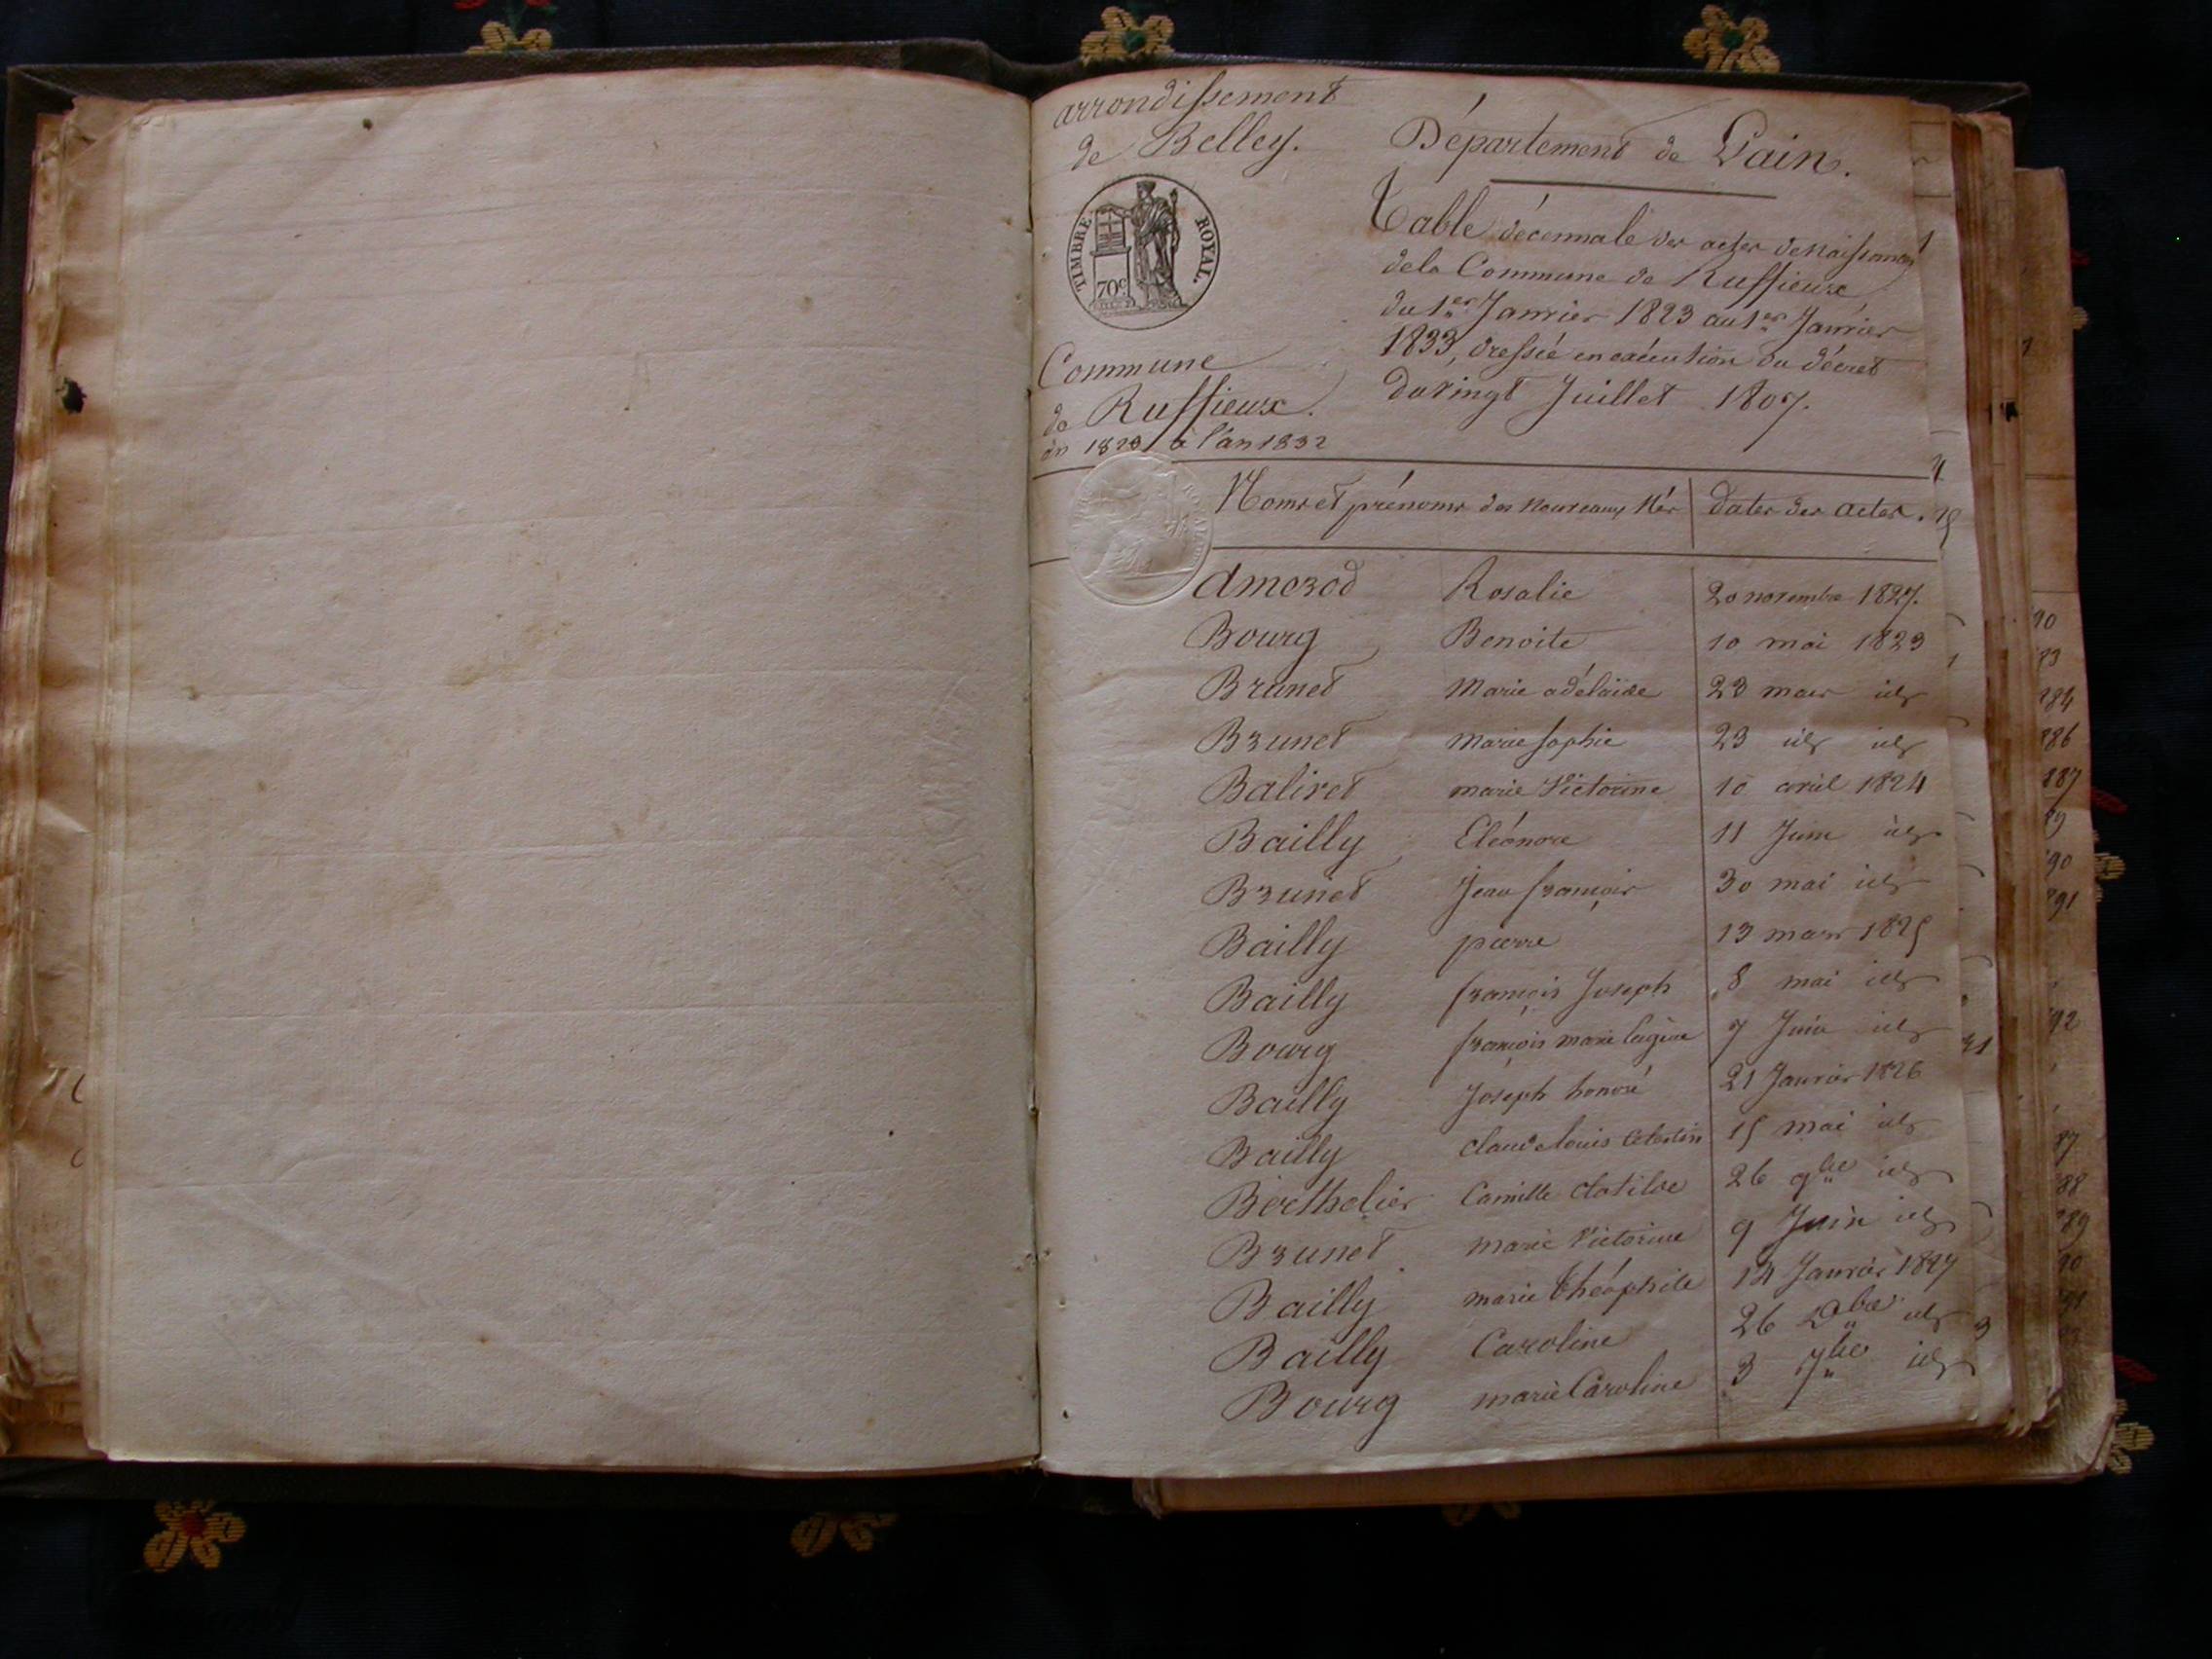 arrondissement
de Belley.
Département de Lain.
TIMBRE ROYAL.
70c
Table décennale des actes de Naissances
de la Commune de Ruffieux
du 1er Janvier 1823 au 1er Janvier
1833, dressée en exécution du décret
du vingt Juillet 1807.
Commune
de Ruffieux.
an 1823 à l'an 1832
Noms et prénoms des Nouveaux Nés dates des actes.
Amerod Rosalie 20 novembre 1827.
Bourg Benoite 10 mai 1823
Brunet Marie adélaïde 23 mars id
Brunet Marie Sophie 23 id id
Balivet marie Victorine 10 avril 1824
Bailly Eléonore 11 Juin id
Brunet Jean françois 30 mai id
Bailly pierre 13 mars 1825
Bailly françois Joseph 8 mai id
Bourg françois marie Eugène 7 Juin id
Bailly Joseph honoré 21 Janvier 1826
Bailly Claude Louis Celestin 15 mai id
Berthelier Camille Clotilde 26 9bre id
Brunet Marie Victorine 9 Juin id
Bailly marie théophile 14 Janvier 1827
Bailly Caroline 26 Xbre id
Bourg marie Caroline 3 7bre id